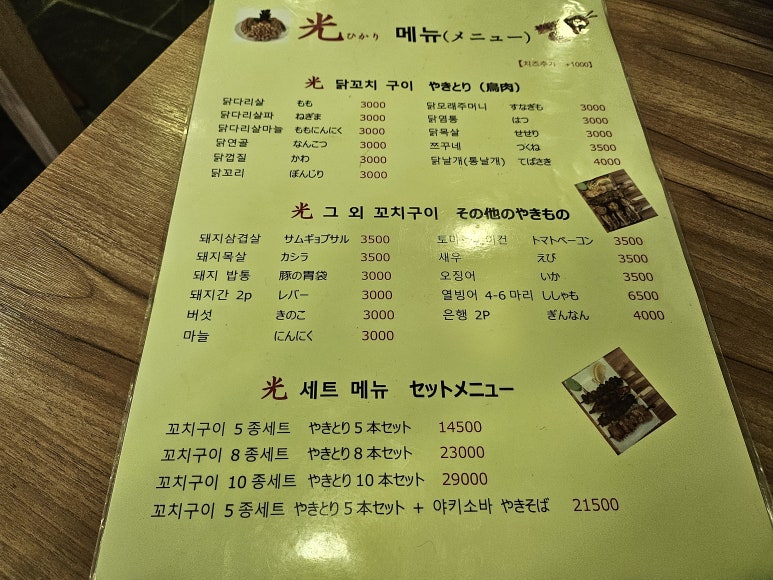 光 ひかり 메뉴(メニュー)
【치즈추가 +1000】
光 닭꼬치 구이 やきとり (鳥肉)
닭다리살 もも 3000
닭다리살파 ねぎま 3000
닭다리살마늘 ももにんにく 3000
닭연골 なんこつ 3000
닭껍질 かわ 3000
닭꼬리 ぼんじり 3000
닭모래주머니 すなぎも 3000
닭염통 はつ 3000
닭목살 せせり 3000
쯔꾸네 つくね 3500
닭날개(통날개) てばさき 4000
光 그 외 꼬치구이 その他のやきもの
돼지삼겹살 サムギョプサル 3500
돼지목살 カシラ 3500
돼지 밥통 豚の胃袋 3000
돼지간 2p レバー 3000
버섯 きのこ 3000
마늘 にんにく 3000
トマトベーコン 3500
새우 えび 3500
오징어 いか 3500
열빙어 4-6 마리 ししゃも 6500
은행 2P ぎんなん 4000
光 세트 메뉴 セットメニュー
꼬치구이 5 종세트 やきとり 5 本セット 14500
꼬치구이 8 종세트 やきとり 8 本セット 23000
꼬치구이 10 종세트 やきとり 10 本セット 29000
꼬치구이 5 종세트 やきとり 5 本セット + 야키소바 やきそば 21500